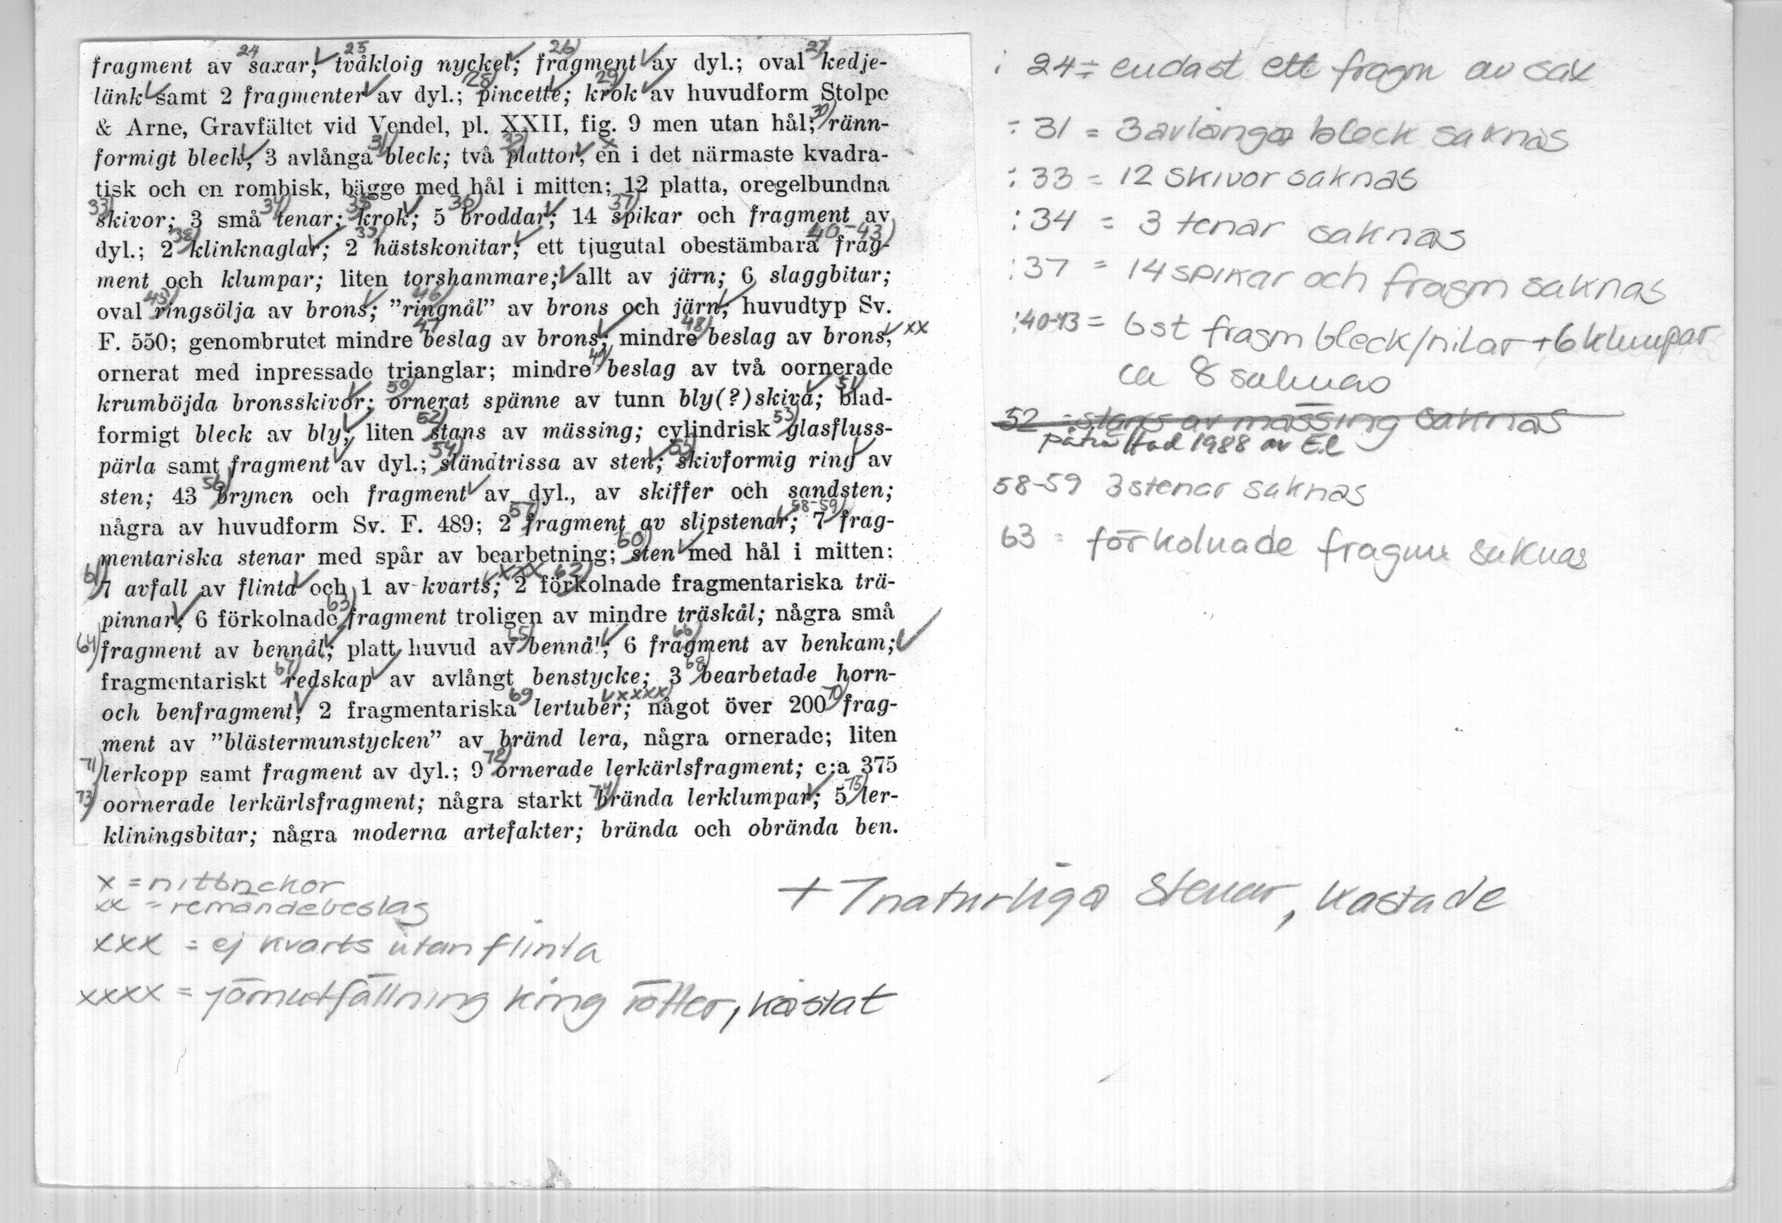 fragment av saxar; tvåkloig nyckel; fragment av dyl.; oval kedje-
länk samt 2 fragmenter av dyl.; pincette; krok av huvudform Stolpe
& Arne, Gravfältet vid Vendel, pl. XXII, fig. 9 men utan hål; ränn-
formigt bleck; 3 avlånga bleck; två plattor, en i det närmaste kvadra-
tisk och en rombisk, bägge med hål i mitten; 12 platta, oregelbundna
skivor; 3 små tenar; krok; 5 broddar; 14 spikar och fragment av
dyl.; 2 klinknaglar; 2 hästskonitar; ett tjugutal obestämbara frag-
ment och klumpar; liten torshammare; allt av järn; 6 slaggbitar;
oval ringsölja av brons; "ringnål" av brons och järn, huvudtyp Sv.
F. 550; genombrutet mindre beslag av brons; mindre beslag av brons, xx
ornerat med inpressade trianglar; mindre beslag av två oornerade
krumböjda bronsskivor; ornerat spänne av tunn bly(?)skiva; blad-
formigt bleck av bly; liten stans av mässing; cylindrisk glasfluss-
pärla samt fragment av dyl.; sländtrissa av sten; skivformig ring av
sten; 43 brynen och fragment av dyl., av skiffer och sandsten;
några av huvudform Sv. F. 489; 2 fragment av slipstenar; 7 frag-
mentariska stenar med spår av bearbetning; sten med hål i mitten;
7 avfall av flinta och 1 av kvarts; 2 förkolnade fragmentariska trä-
pinnar; 6 förkolnade fragment troligen av mindre träskål; några små
fragment av bennål; platt huvud av bennål; 6 fragment av benkam;
fragmentariskt redskap av avlångt benstycke; 3 bearbetade horn-
och benfragment; 2 fragmentariska lertuber; något över 200 frag-
ment av "blästermunstycken" av bränd lera, några ornerade; liten
lerkopp samt fragment av dyl.; 9 ornerade lerkärlsfragment; c:a 375
oornerade lerkärlsfragment; några starkt brända lerklumpar; 5 ler-
kliningsbitar; några moderna artefakter; brända och obrända ben.
x = nitbrickor
xx = remändebeslag
xxx = ej kvarts utan flinta
xxxx = järnutfällning kring rötter, kastat
: 24 = endast ett fragm av sax
: 31 = 3 avlånga bleck saknas
: 33 = 12 skivor saknas
: 34 = 3 tenar saknas
: 37 = 14 spikar och fragm saknas
: 40-43 = 6 st fragm bleck/nitar + 6 klumpar
ca 8 saknas
52 = stans av mässing saknas
påträffad 1988 av E.L
58-59 3 stenar saknas
63 = förkolnade fragm saknas
+ 7 naturliga stenar, kastade